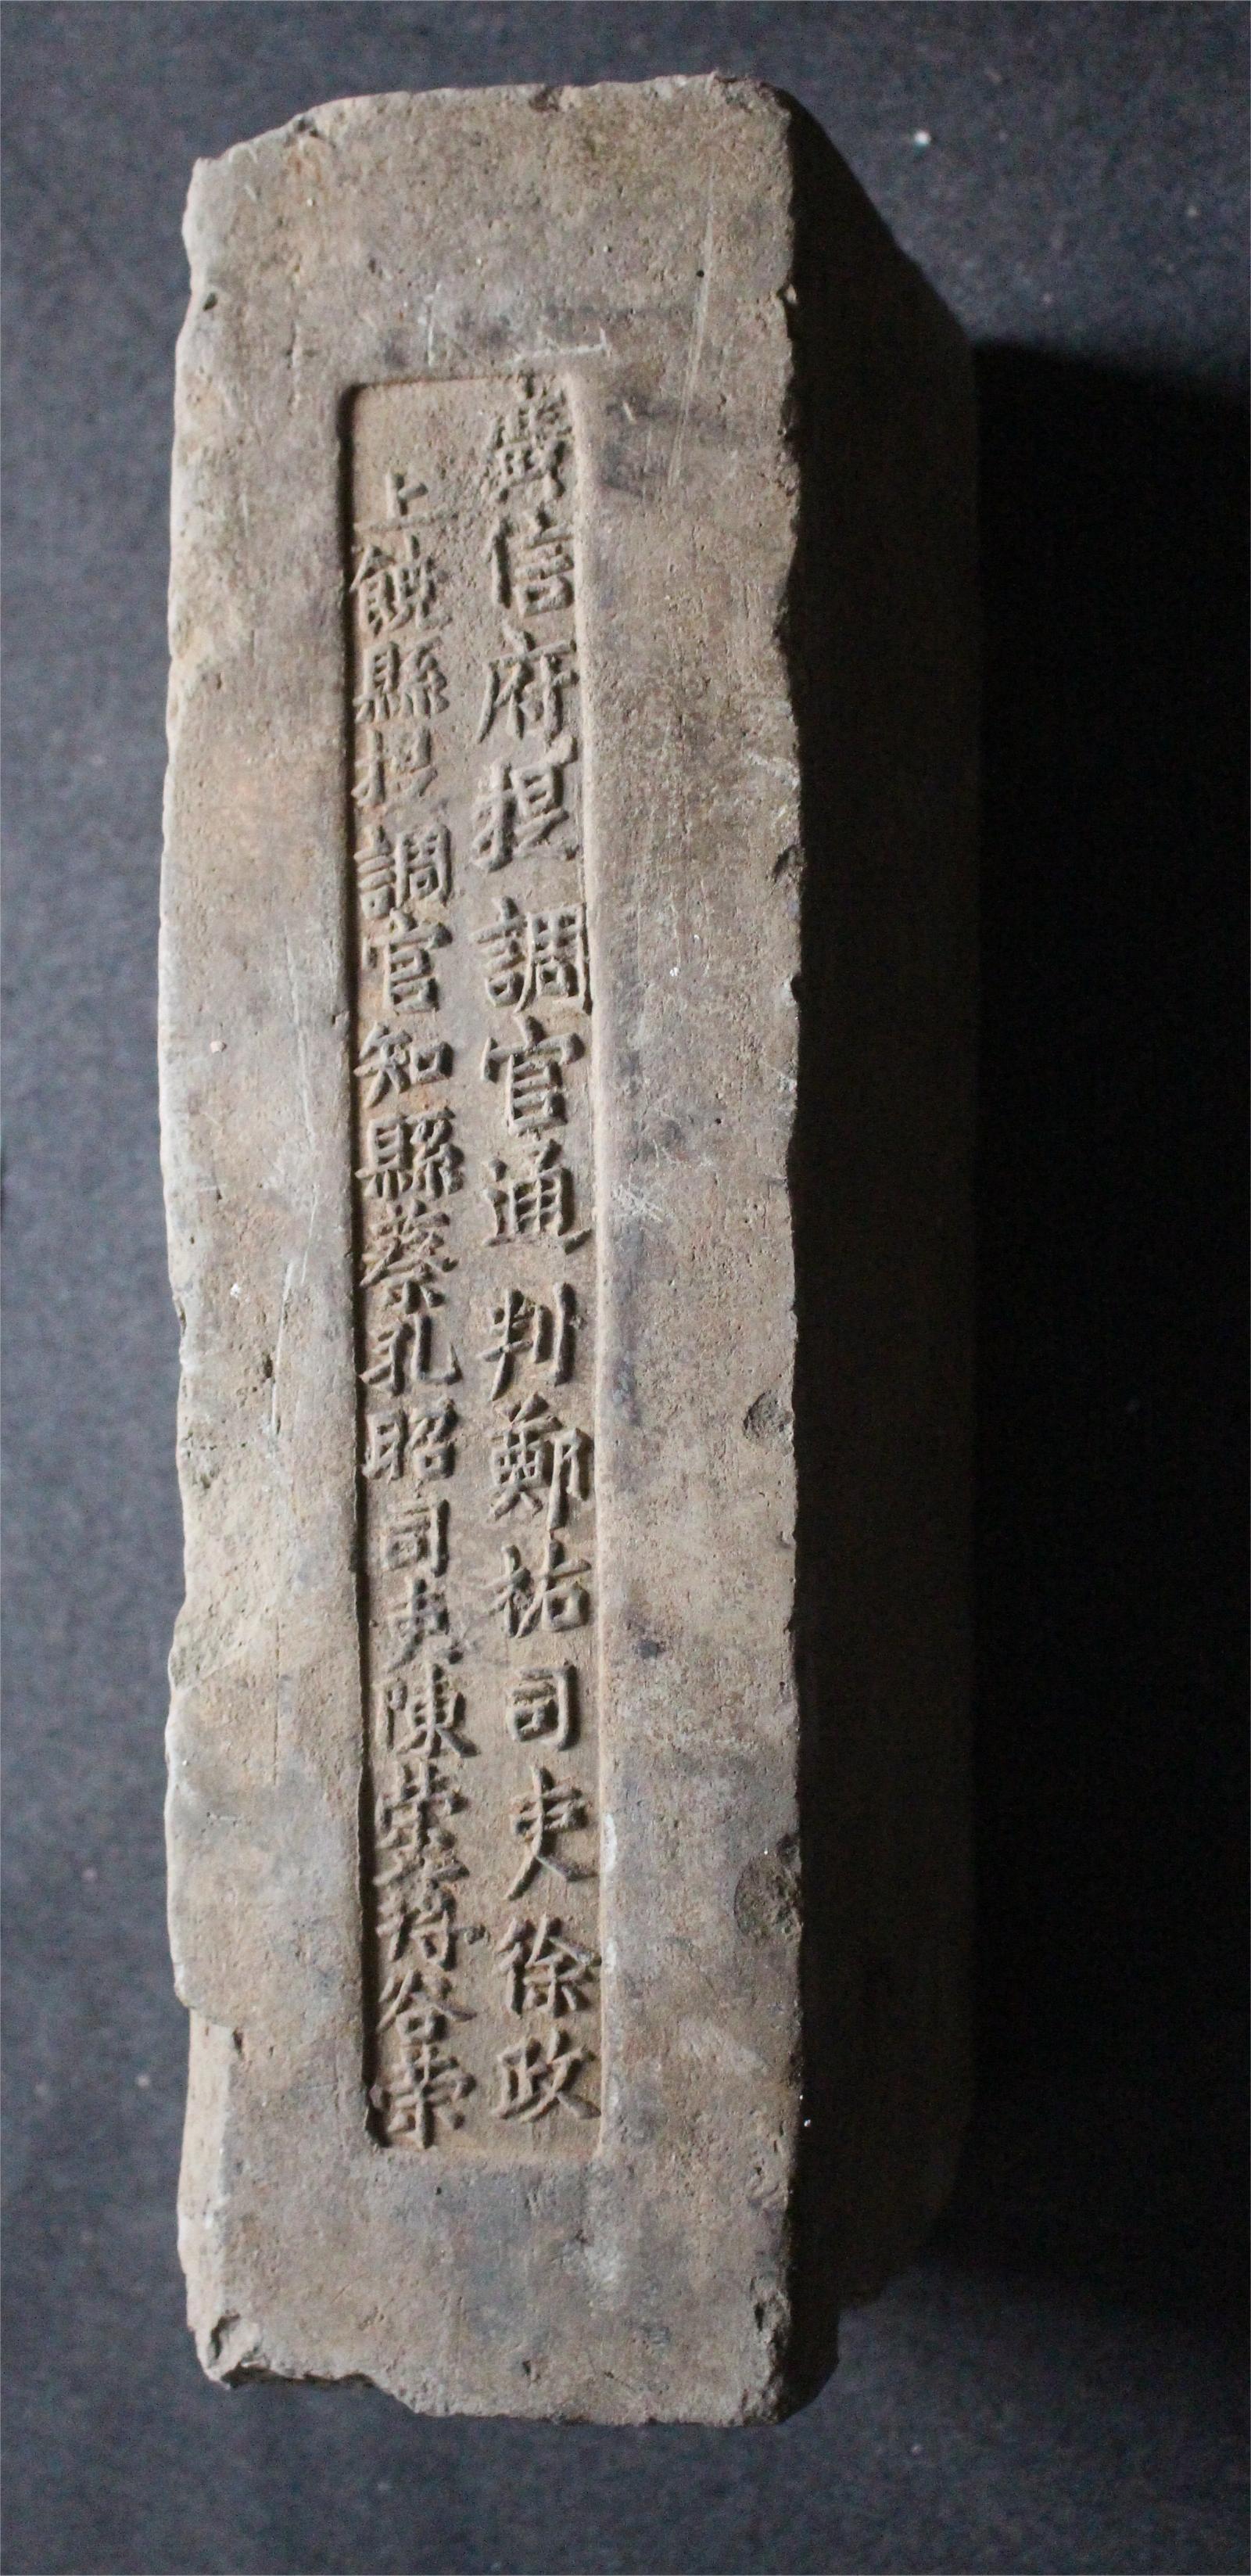 廣信府提調官通判鄭祐司吏徐政
上饒縣提調官知縣蔡孔昭司吏陳榮谷榮